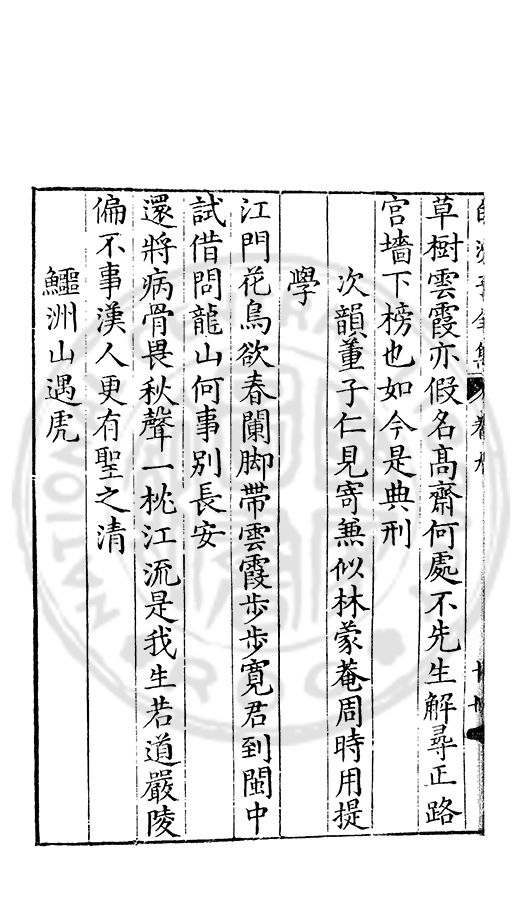 草樹雲霞亦假名高齋何處不先生解尋正路
宫墻下榜也如今是典刑
次韻董子仁見寄兼似林蒙菴周時用提
學
江門花鳥欲春闌脚帶雲霞步步寬君到閩中
試借問龍山何事別長安
還將病骨畏秋聲一枕江流是我生若道嚴陵
偏不事漢人更有聖之清
鱷洲山遇虎